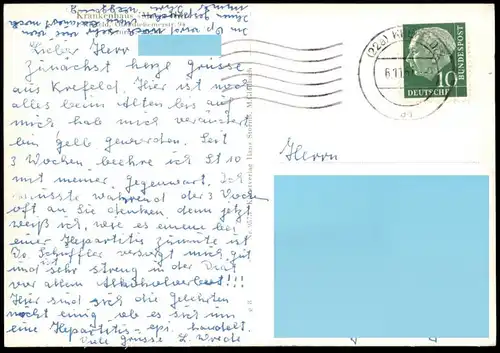 Krankenhaus
Lieber Herr
zunächst herzl. Grüsse
aus Krefeld. Hier ist noch
alles beim alten bis auf
mich hab mich verändert
bin gelb geworden. Seit
3 Wochen beehre ich St 10
mit meiner Gegenwart. Ich
musste während der 3 Wochen
oft an Sie denken, denn jetzt
weiß ich, wie es einem bei
einer Hepatitis zumute ist
Dr. Schiffler versorgt mich gut
und sehr streng in der Diät
vor allem Alkoholverbot!!!
Hier sind sich die Gelehrten
noch einig ob es sich um
eine Hepatitis - epi. handelt.
Viele Grüsse
Herrn
(22a) KREFELD
DEUTSCHE
BUNDESPOST
10